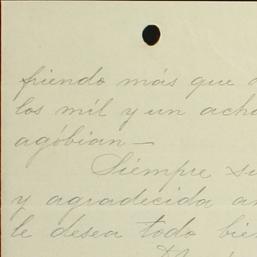 friendo más que
los mil y un acha
agóbian —
Siempre su
y agradecida a
le desea todo bie